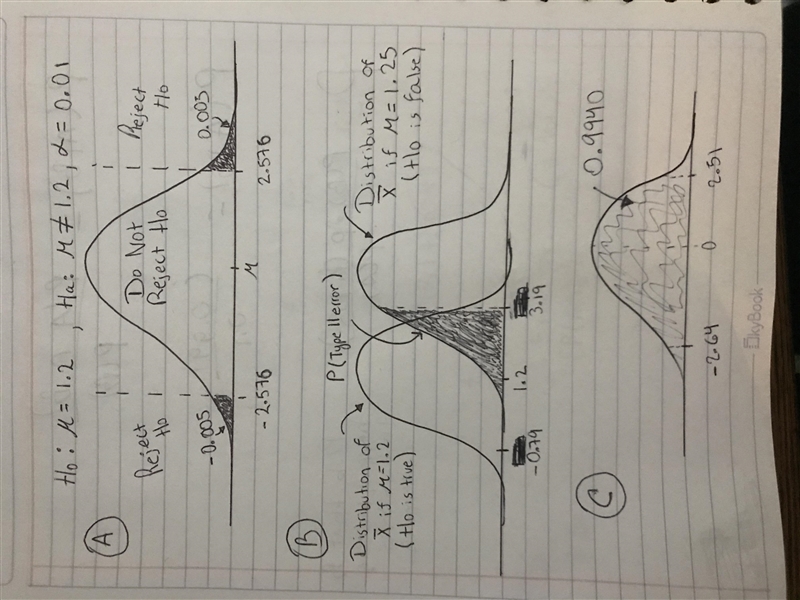 Ho: μ = 1.2 , Ha: μ ≠ 1.2 , α = 0.01
A
Reject Ho
Do Not Reject Ho
Reject Ho
-0.005
0.005
-2.576
μ
2.576
B
P(Type II error)
Distribution of
x̄ if μ=1.2
(Ho is true)
Distribution of
x̄ if μ = 1.25
(Ho is false)
-0.79
1.2
3.19
C
0.9940
-2.64
0
2.51
SkyBook